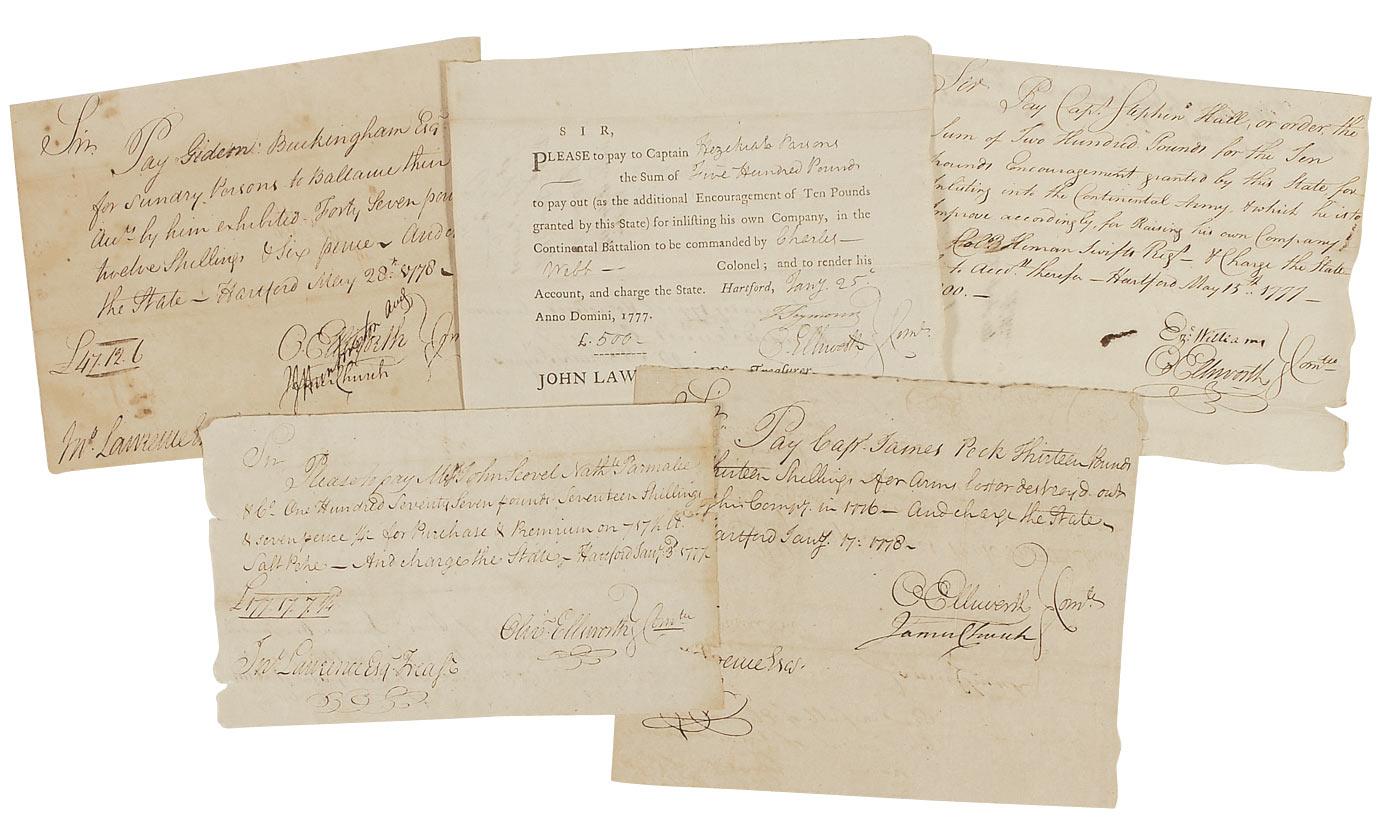 Sir.
Pay Gideon Buckingham Esqr
for Sundry Persons to Ballance their
Acts. by him exhibited Forty Seven pou
twelve Shillings & Six pence – And
the State – Hartford May 28th. 1778 –
£47.12.6
O Ellsworth
James Church
Jno. Lawrence
SIR,
PLEASE to pay to Captain Hezekiah Parsons
the Sum of Five Hundred Pounds
to pay out (as the additional Encouragement of Ten Pounds
granted by this State) for inlisting his own Company, in the
Continental Battalion to be commanded by Charles –
Webb – Colonel; and to render his
Account, and charge the State. Hartford, Jany. 25
Anno Domini, 1777.
£. 500 –
T Seymour
O Ellsworth
Comte.
JOHN LAW
Treasurer.
Sir
Pay Capt. Stephen Hall, or order the
Sum of Two Hundred Pounds for the Ten
pounds Encouragement granted by this State for
Inlisting into the Continental Army & which he is to
Improve accordingly, for Raising his own Company
Colo. Heman Swifts Regt – & Charge the State
to Accot. therefor – Hartford May 15th. 1777 –
00. –
Ezl. Williams
O Ellsworth
Comtee
Sir
Please to pay John Scovel Nathl. Parmalee
& Co. One Hundred Seventy Seven pounds Seventeen Shillings
& seven pence for Purchase & Premium on
Salt Petre – And charge the State – Hartford Jany. 3d 1777 –
£177.17.7
Olivr. Ellsworth
Comtee
Jno. Lawrence Esq Treasr.
Pay Capt. James Peck Thirteen Pounds
thirteen Shillings for Arms lost or destroyd. out
of his Compy. in 1776 – And charge the State –
artford Jany. 17. 1778 –
O Ellsworth
James Church
Comtee
rence Esqr.